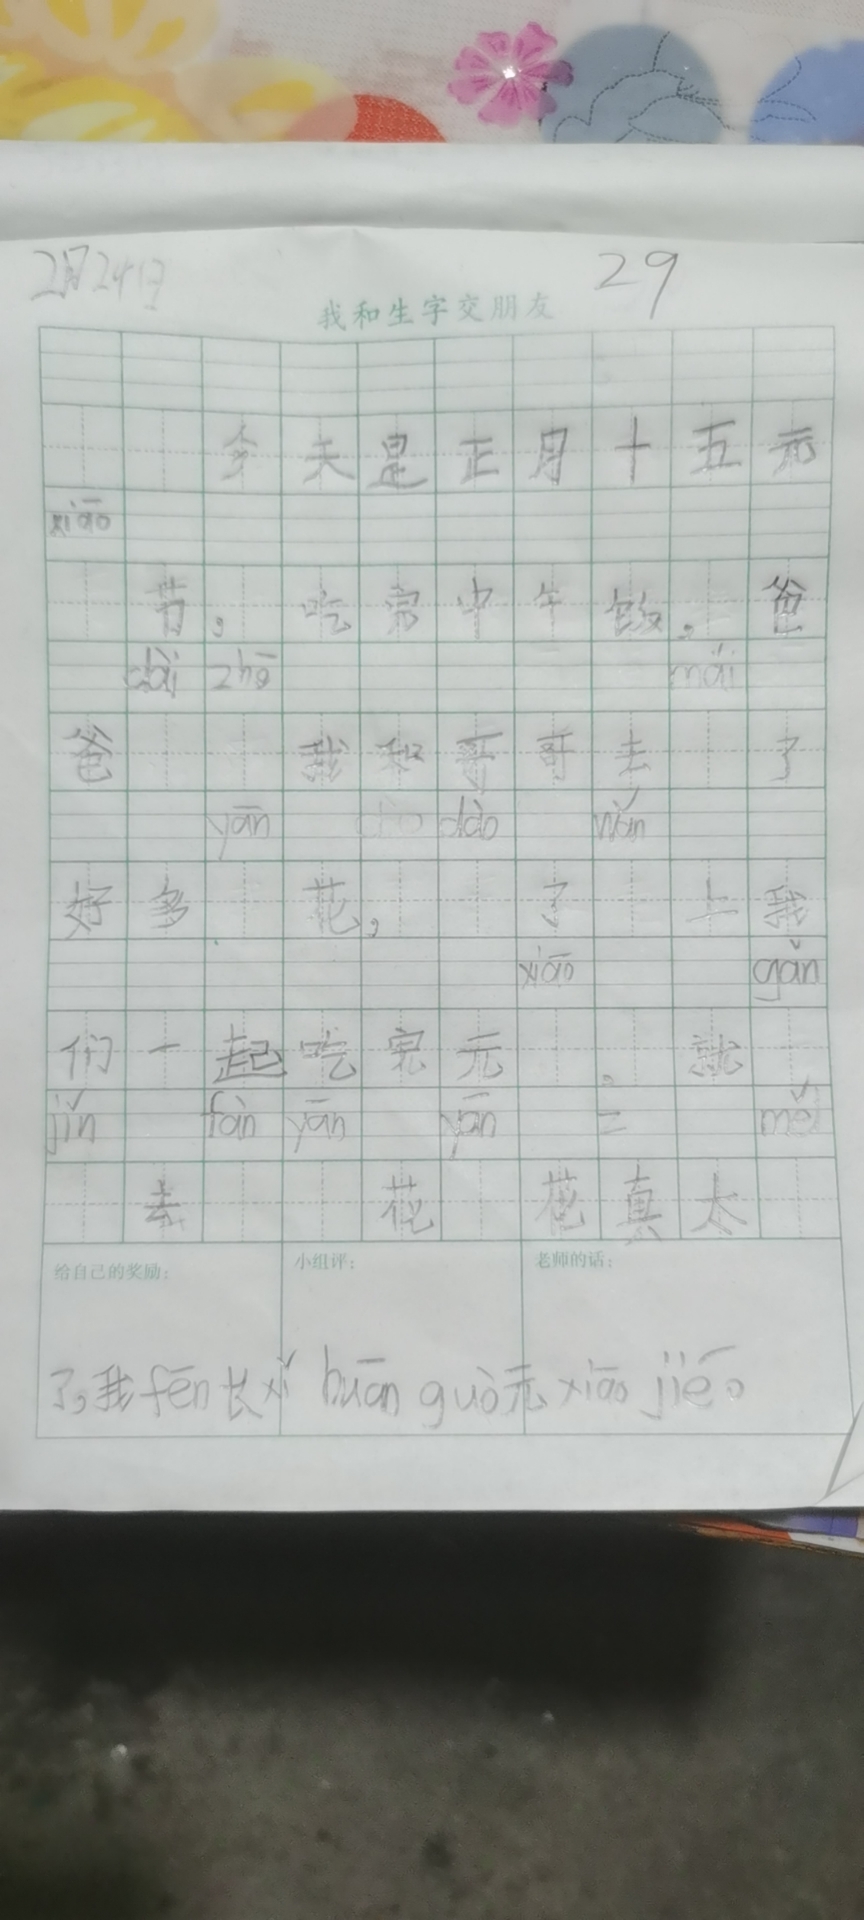 2月24日
29
我和生字交朋友
今天是正月十五元
xiāo
节，吃完中午饭，爸
dài zhē mǎi
爸我和哥哥去了
yān dào wǎn
好多花，了上我
xiāo gǎn
们一起吃完元，就
jǐn fàn yān yān měi
去花花真太
给自己的奖励：
小组评：
老师的话：
了，我fēn长xǐ huān guò元xiāo jié。